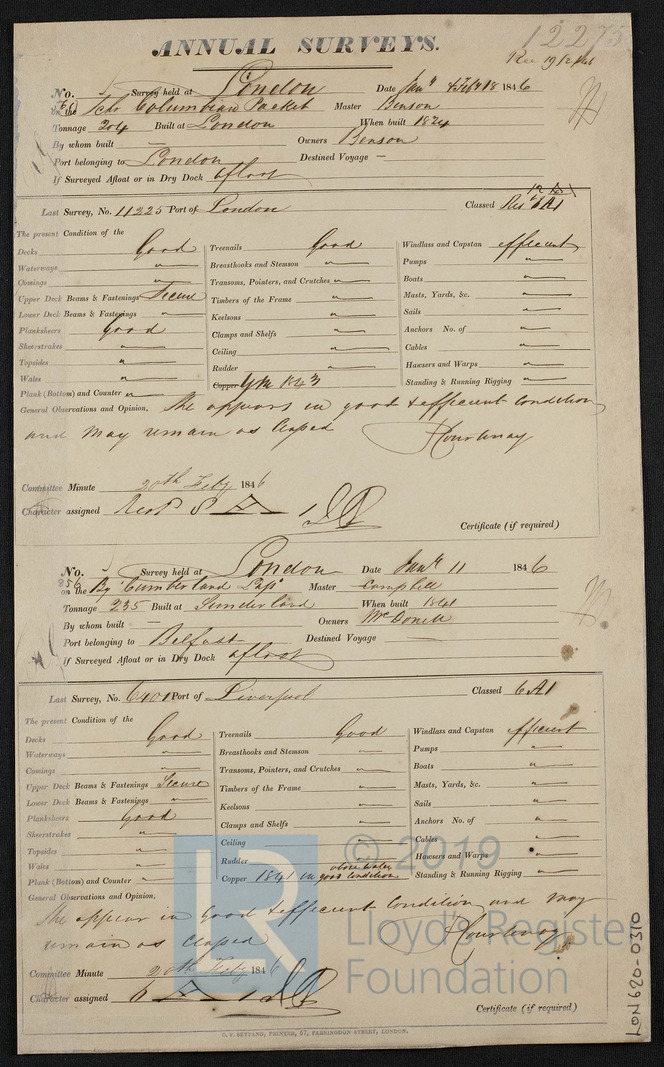 12275
ANNUAL SURVEYS.
Rec 19/2/46
No. 5 Survey held at London Date Jany & Feby 18 1846
on the Schr Columbian Packet Master Benson
Tonnage 204 Built at London When built 1824
By whom built — Owners Benson
Port belonging to London Destined Voyage —
If Surveyed Afloat or in Dry Dock afloat
Last Survey, No. 11225 Port of London Classed
The present Condition of the
Decks Good
Waterways "
Comings "
Upper Deck Beams & Fastenings Secure
Lower Deck Beams & Fastenings "
Planksheers Good
Sheerstrakes "
Topsides "
Wales "
Plank (Bottom) and Counter "
Treenails Good
Breasthooks and Stemson "
Transoms, Pointers, and Crutches "
Timbers of the Frame "
Keelsons "
Clamps and Shelfs "
Ceiling "
Rudder "
Copper YM 1843
Windlass and Capstan efficient
Pumps "
Boats "
Masts, Yards, &c. "
Sails "
Anchors No. of "
Cables "
Hawsers and Warps "
Standing & Running Rigging "
General Observations and Opinion, She appears in good & efficient condition
and may remain as Classed Courtenay
Committee Minute 20th Feby 1846
Character assigned
Certificate (if required)
No. 5 Survey held at London Date Jany 11 1846
856
on the Bg "Cumberland Lass" Master Campbell
Tonnage 235 Built at Sunderland When built 1841
By whom built — Owners McDonell
Port belonging to Belfast Destined Voyage
If Surveyed Afloat or in Dry Dock afloat
Last Survey, No. 6401 Port of Liverpool Classed 6 A1
The present Condition of the
Decks Good
Waterways "
Comings "
Upper Deck Beams & Fastenings Secure
Lower Deck Beams & Fastenings "
Planksheers Good
Sheerstrakes "
Topsides "
Wales "
Plank (Bottom) and Counter "
Treenails Good
Breasthooks and Stemson "
Transoms, Pointers, and Crutches "
Timbers of the Frame "
Keelsons "
Clamps and Shelfs "
Ceiling "
Rudder "
above water
Copper 1841 in good condition
Windlass and Capstan efficient
Pumps "
Boats "
Masts, Yards, &c. "
Sails "
Anchors No. of "
Cables "
Hawsers and Warps "
Standing & Running Rigging "
General Observations and Opinion,
She appear in Good & efficient Condition and may
remain as Classed Courtenay
Committee Minute 20th Feby 1846
Character assigned 6 A 1
Certificate (if required)
G. V. SETTANG, PRINTER, 67, FARRINGDON STREET, LONDON.
LON 620-0310
LR
© 2019
Lloyd's Register
Foundation